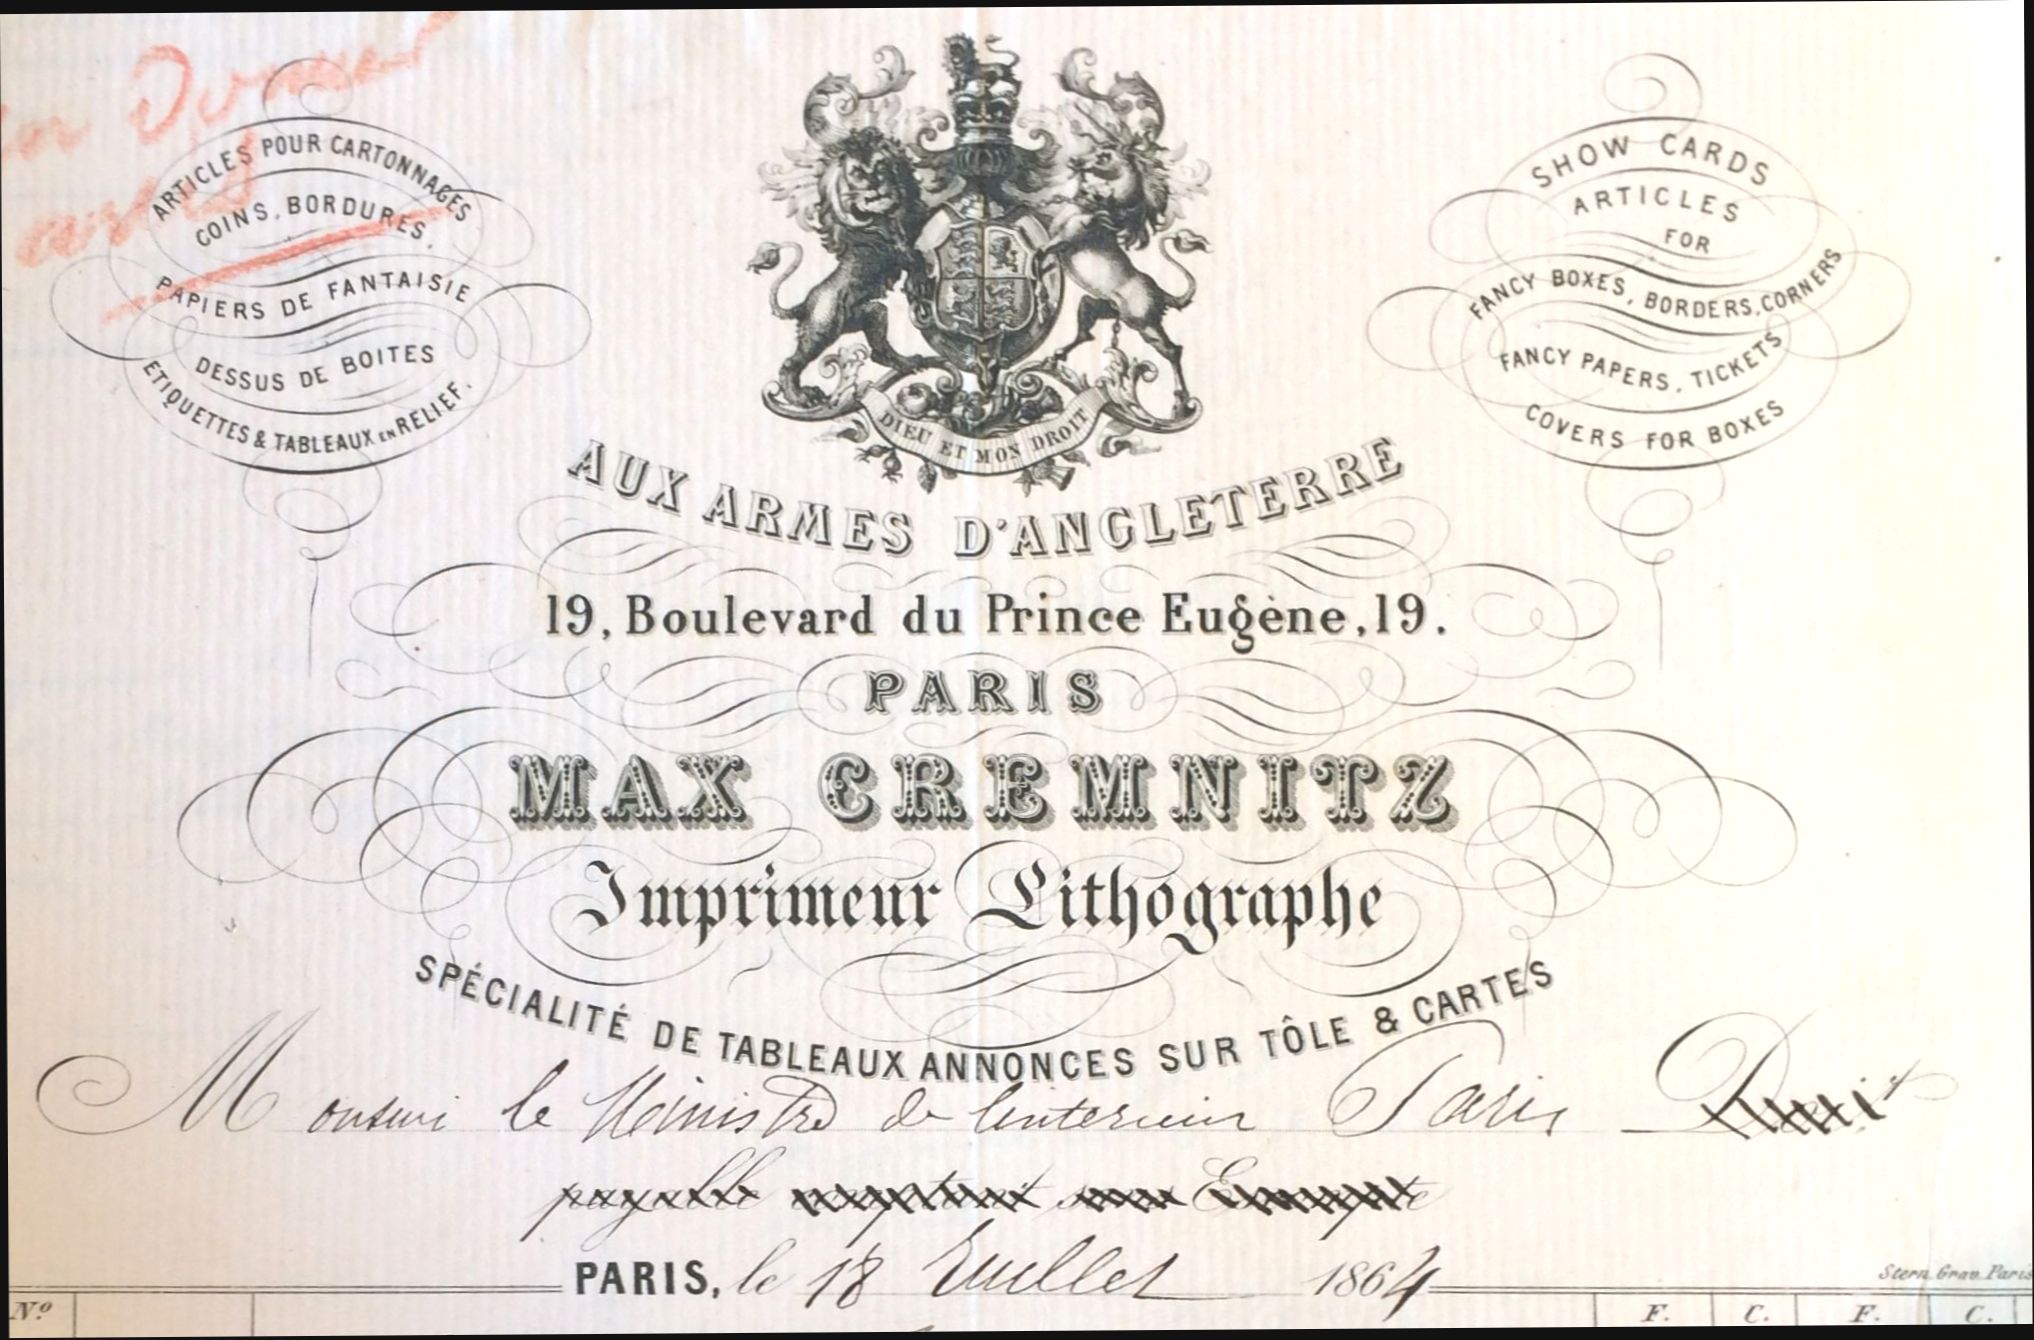 ARTICLES POUR CARTONNAGES
COINS, BORDURES,
PAPIERS DE FANTAISIE
DESSUS DE BOITES
ETIQUETTES & TABLEAUX EN RELIEF.
SHOW CARDS
ARTICLES
FOR
FANCY BOXES, BORDERS, CORNERS
FANCY PAPERS, TICKETS
COVERS FOR BOXES
DIEU ET MON DROIT
AUX ARMES D'ANGLETERRE
19, Boulevard du Prince Eugène, 19.
PARIS
MAX CREMNITZ
Imprimeur Lithographe
SPÉCIALITÉ DE TABLEAUX ANNONCES SUR TÔLE & CARTES
Monsieur le Ministre de l'interieur Paris Doit
payable
PARIS, le 18 Juillet 1864
Stern Grav. Paris
No. F. C. F. C.